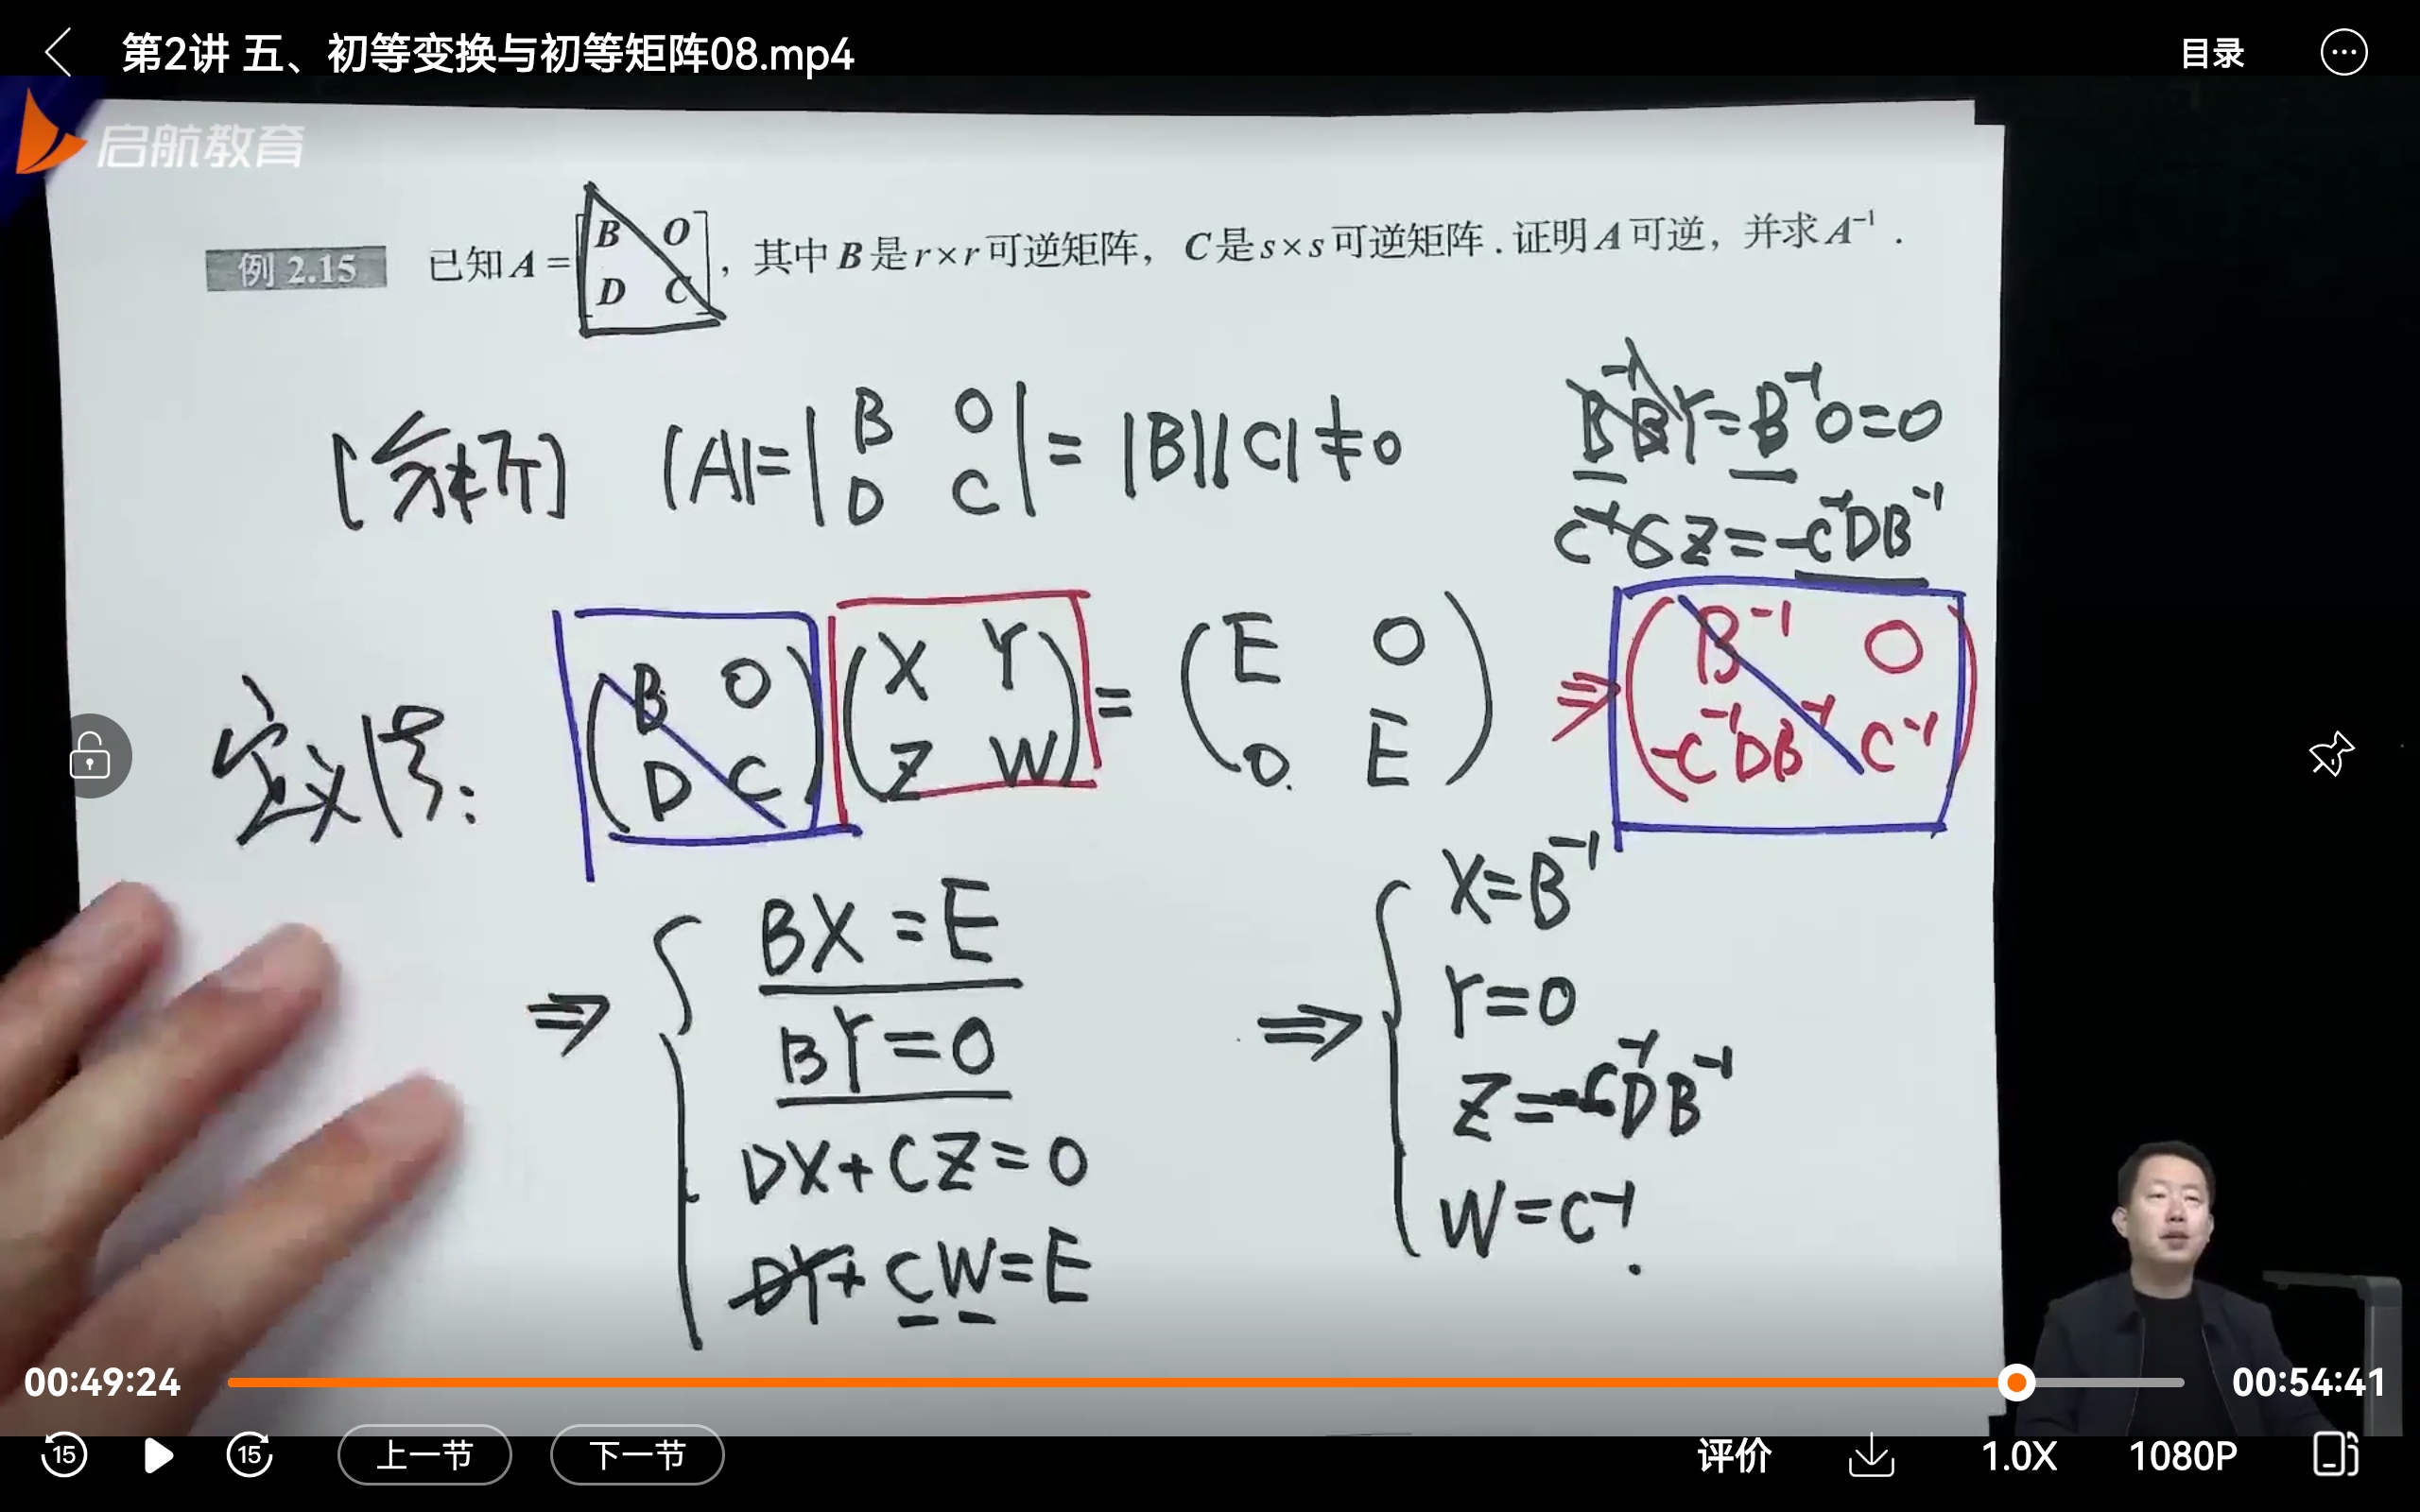 第2讲 五、初等变换与初等矩阵08.mp4
目录
启航教育
例 2.15 已知 A = [B O; D C], 其中 B 是 r×r 可逆矩阵, C 是 s×s 可逆矩阵. 证明 A 可逆, 并求 A⁻¹.
[分析] |A| = |B O; D C| = |B||C| ≠ 0
B⁻¹BY = B⁻¹O = O
C⁻¹CZ = -C⁻¹DB⁻¹
定义法:
(B O; D C) (X Y; Z W) = (E O; O E) ⇒ (B⁻¹ O; -C⁻¹DB⁻¹ C⁻¹)
⇒ { BX = E
BY = O
DX + CZ = O
DY + CW = E
⇒ { X = B⁻¹
Y = O
Z = -C⁻¹DB⁻¹
W = C⁻¹.
00:49:24
00:54:41
15
15
上一节
下一节
评价
1.0X
1080P